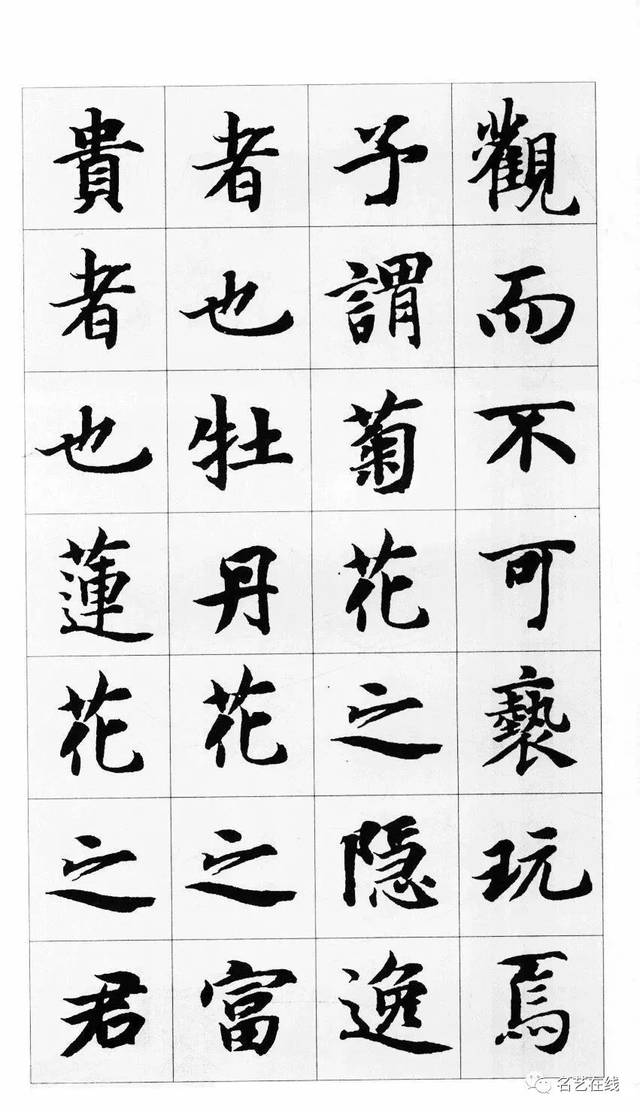 觀而不可褻玩焉
予謂菊花之隱逸
者也牡丹花之富
貴者也蓮花之君
名艺在线